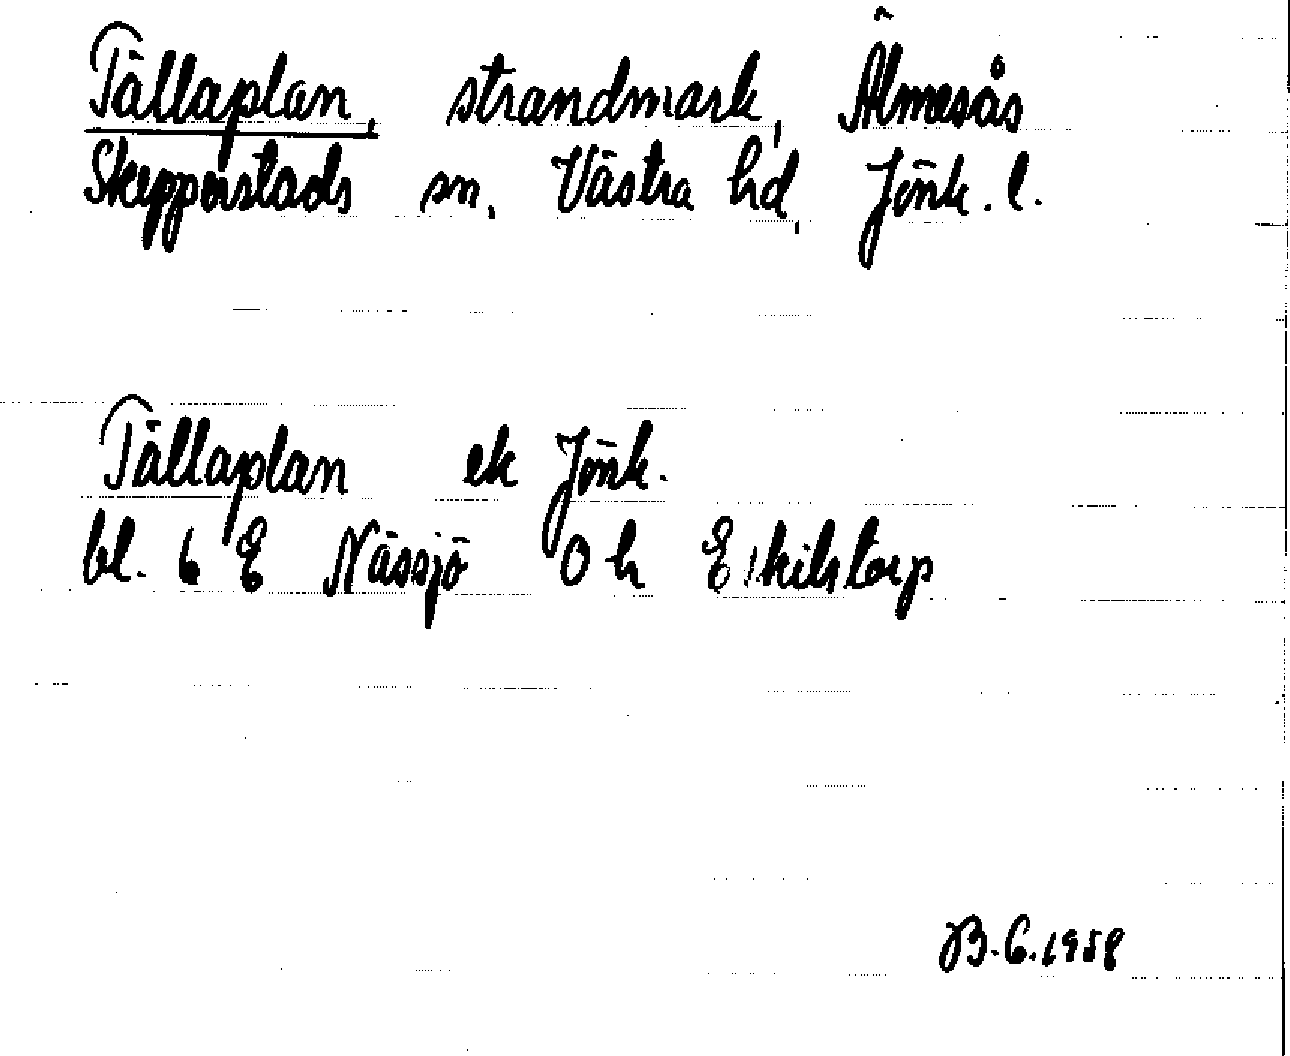 Tällaplan, strandmark, Älmesås
Skepperstads sn, Västra hd, Jönk. l.
Tällaplan ek Jönk.
bl. 6 E Nässjö O h Eskilstorp
B. G. 1958